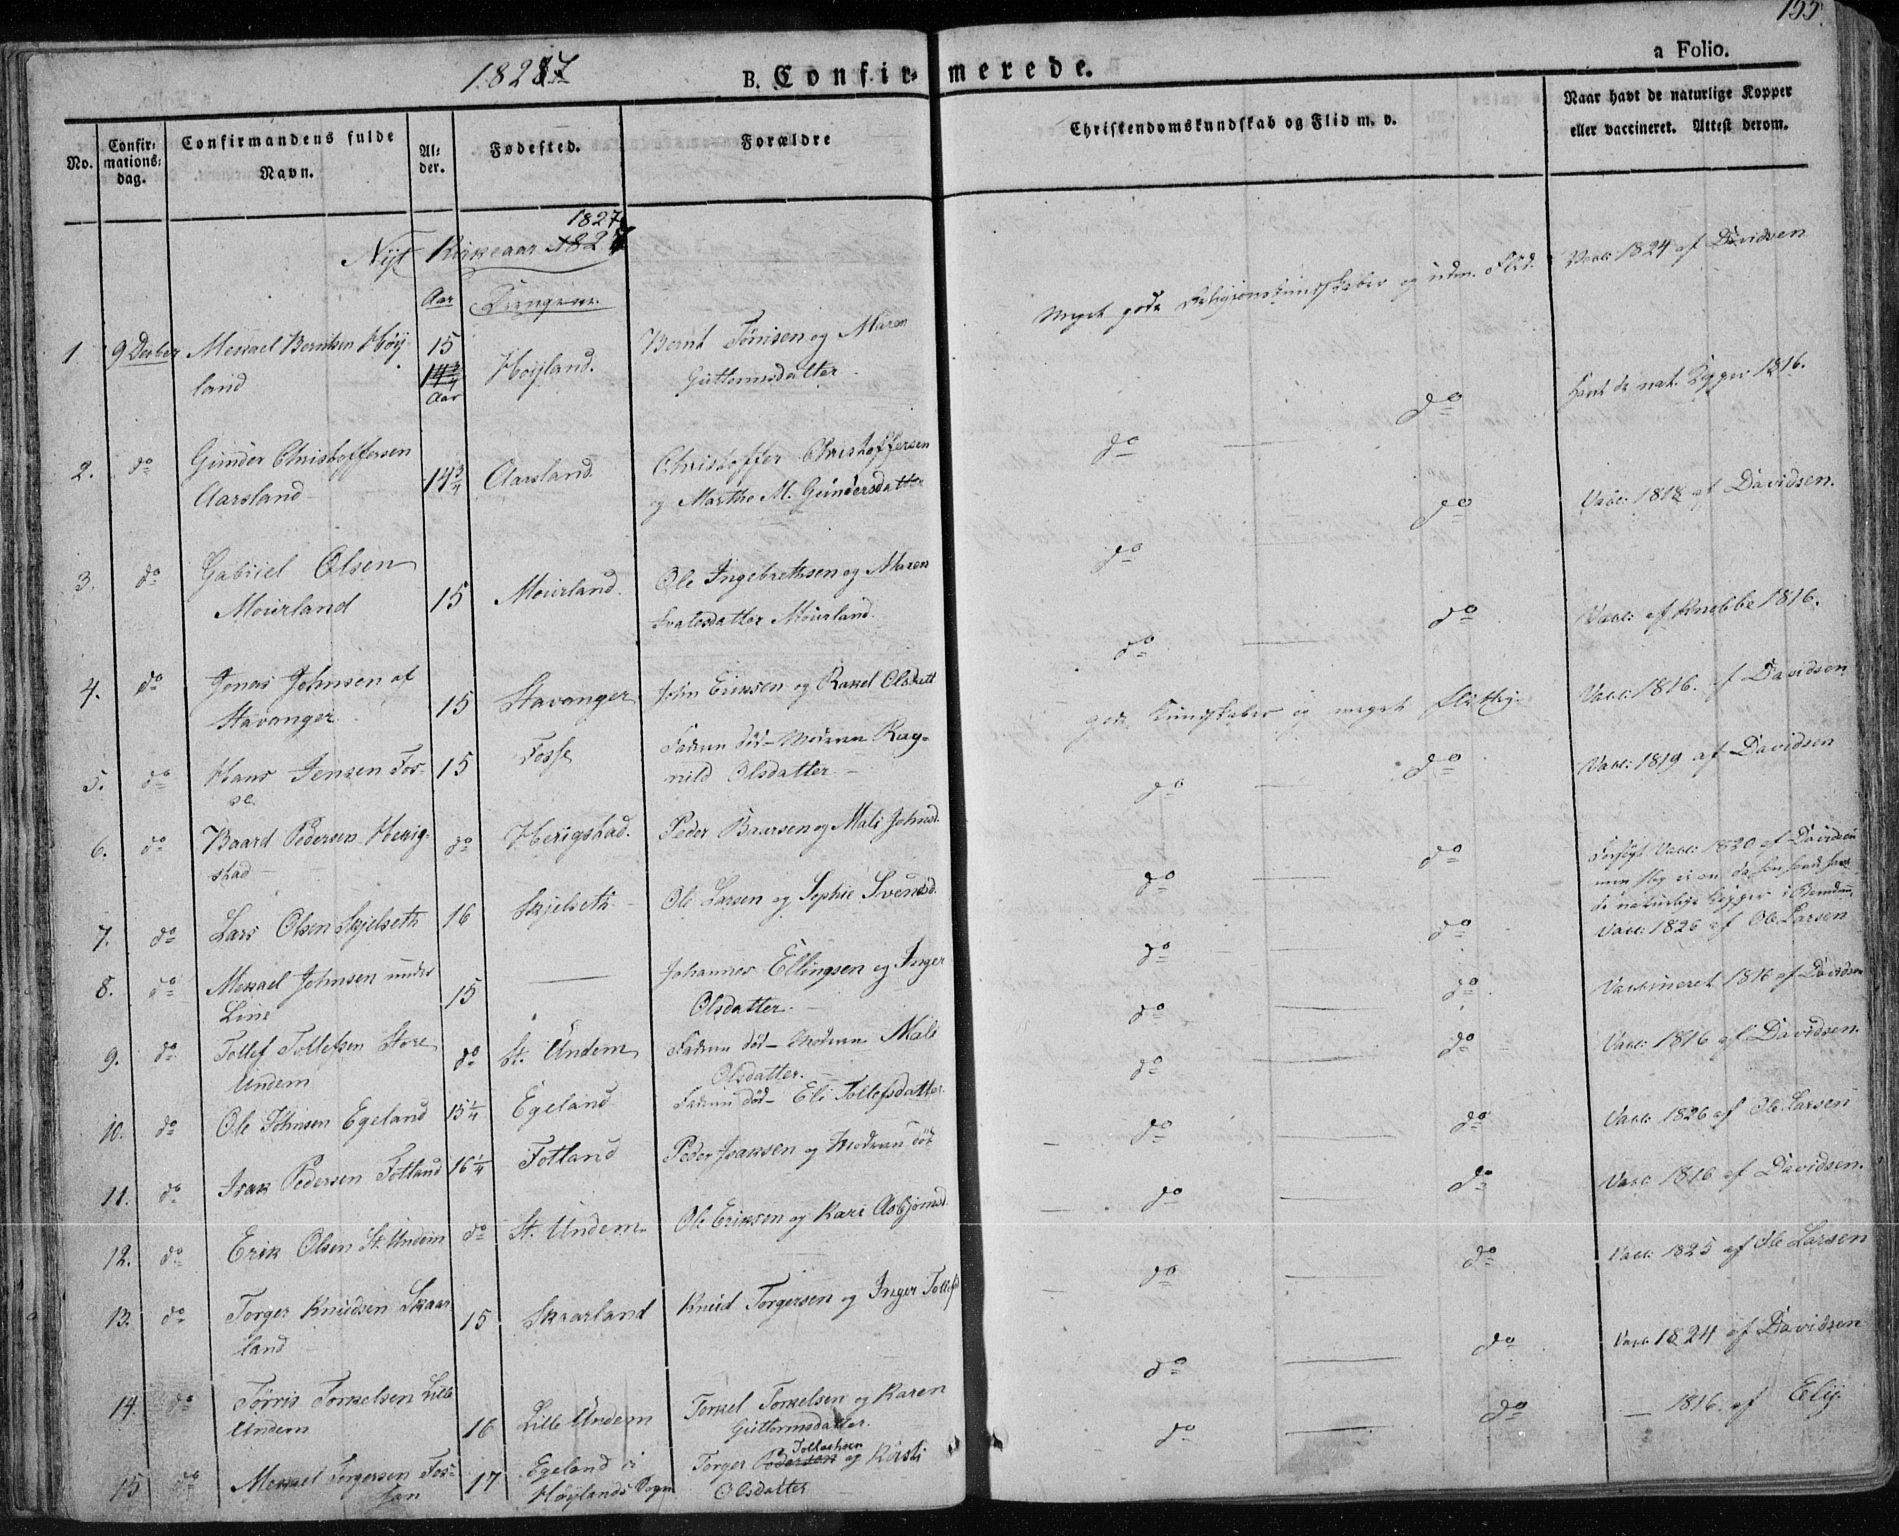 155.
18287
B. Confir- merede.
a Folio.
No.
Confir-
mations-
dag.
Confirmandens fulde
Navn.
Al-
der.
Fødested.
Forældre
Christendomskundskab og Flid m. v.
Naar havt de naturlige Kopper
eller vaccineret. Attest derom.
1827
Nyt Kirkeaar 1827
Aar Drengene.
1 9 Decber Mikkael Berntsen Høy-
land
15
14 3/4
Aar
Høyland.
Bernt Tønisen og Maren
Guttormsdatter
Meget gode Religionskundskaber og udm. Flid.
Vacc: 1824 af Davidsen
2. do Gunder Christoffersen
Aarsland
14 3/4 Aarsland
Christoffer Christoffersen
og Marthe M. Gundersdatter
do — do
Havt de nat. Kopper 1816.
3. do Gabriel Olsen
Mourland
15 Mourland.
Ole Ingebrethsen og Maren
Ivalesdatter Mourland.
do — do
Vacc: 1818 af Davidsen.
4. do Jonas Johnsen af
Stavanger
15 Stavanger
John Eriksen og Rakel Olsdatt
do — do
Vacc: af Krabbe 1816.
5. do Hans Jensen Fos-
se.
15 Fosse
Faderen død - Moderen Rag-
nild Olsdatter -
gode Kundskaber og meget flittig
Vacc: 1816. af Davidsen
6. do Baard Pedersen Herig-
stad -
do Herigstad.
Peder Baarsen og Mali Johnsd.
do — do
Vacc: 1819 af Davidsen
7. do Lars Olsen Skjelseth
16 Skjelseth
Ole Larsen og Sophie Svensd.
do — do
Forsøgt Vacc: 1820 af Davidsen
men slog ei an da han havde havt
de naturlige Kopper i
Vacc: 1826 af Ole Larsen
8. do Mikkael Johnsen under
Line
15 —
Johannes Ellingsen og Inger
Olsdatter. -
do — do
Vaccineret 1816 af Davidsen
9. do Tollef Tollefsen Store
Undem
do St. Undem
Faderen død - Moderen Mali
Olsdatter. -
do — do
Vacc: 1816 af Davidsen.
10. do Ole Johnsen Egeland
15 1/4 Egeland
Faderen død - Eli Tollefsdatter
do — do
Vacc: 1826 af Ole Larsen
11. do Isak Pedersen Fotland
16 1/4 Fotland
Peder Isaksen og Moderen død
do — do
Vacc 1816 af Davidsen.
12. do Erik Olsen St. Undem
do St. Undem
Ole Eriksen og Kari Asbjørnsd.
do — do
Vacc: 1825 af Ole Larsen
13. do Torger Knudsen Skaar
land
15 Skaarland
Knud Torgersen og Inger Tollefs
do — do
Vacc 1824 af Davidsen
14. do Tørris Torkelsen Lille
Undem
16 Lille Undem
Torkel Torkelsen og Karen
Guttormsdatter.
do — do
— 1816. af Ely.
15 do Mikkel Torgersen Fos-
san
17 Egeland i
Høylands Sogn
Tollachsen
Torger Pedersen og Kirsti
Olsdatter